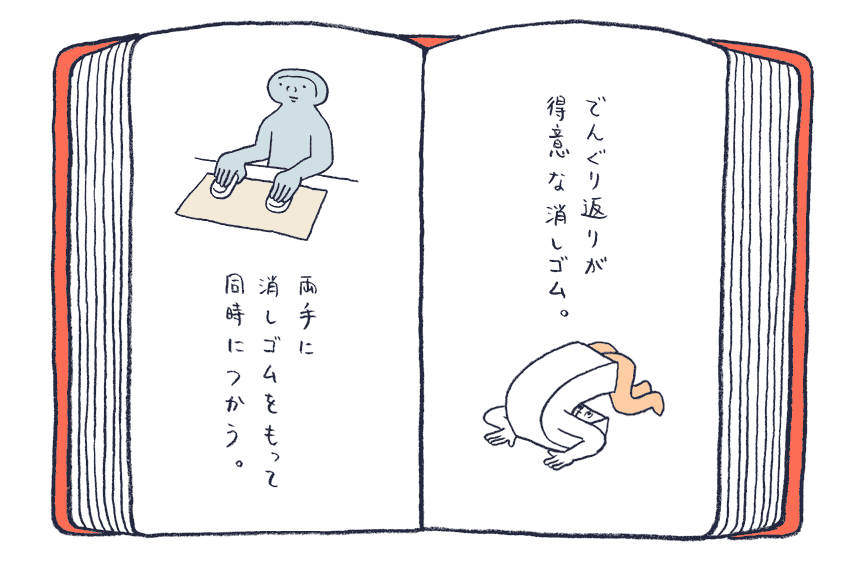 でんぐり返りが
得意な消しゴム。
両手に
消しゴムをもって
同時につかう。